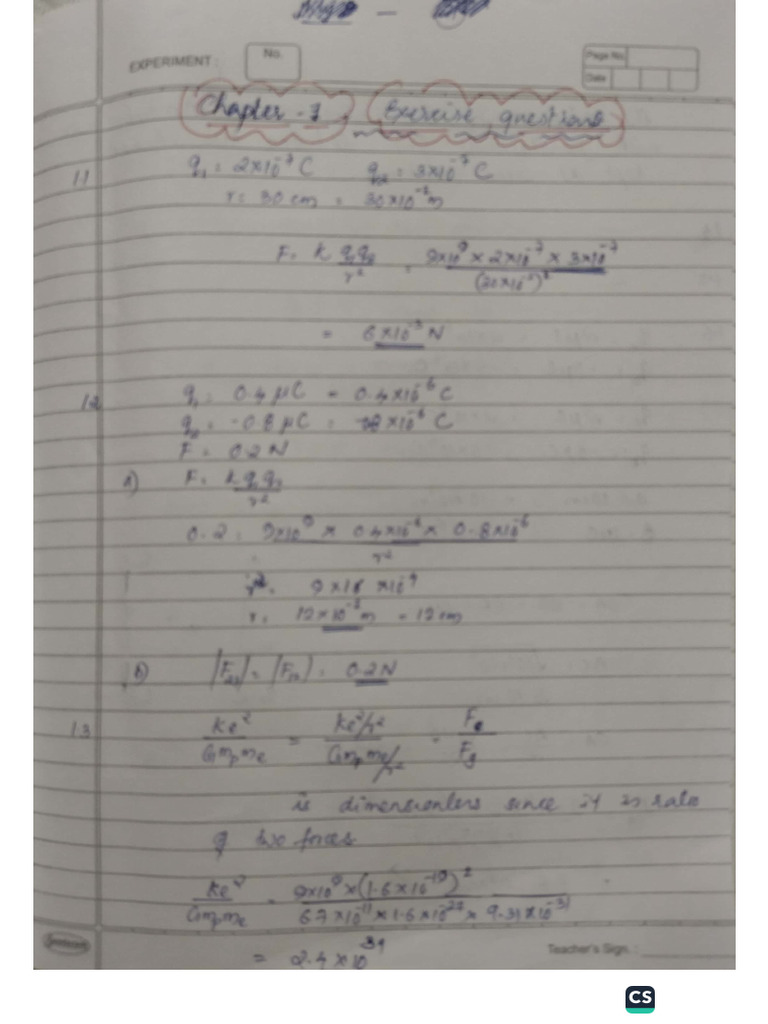 EXPERIMENT : No. Page No.
Date
Chapter - 1 Exercise questions
1.1 q₁ = 2×10⁻⁷ C q₂ = 3×10⁻⁷ C
r = 30 cm = 30×10⁻²m
F = k q₁q₂/r² = 9×10⁹ × 2×10⁻⁷ × 3×10⁻⁷/(30×10⁻²)²
= 6×10⁻³ N
1.2 q₁ = 0.4 μC = 0.4×10⁻⁶ C
q₂ = -0.8 μC = ×10⁻⁶ C
F = 0.2 N
a) F = k q₁q₂/r²
0.2 = 9×10⁹ × 0.4×10⁻⁶ × 0.8×10⁻⁶/r²
r² = 9×16 ×10⁻⁴
r = 12×10⁻²m = 12 cm
b) |F₂₁| = |F₁₂| = 0.2 N
1.3 ke²/Gmₚmₑ = ke²/r²/Gmₚmₑ/r² = Fₑ/F_g
is dimensionless since it is ratio
of two forces
ke²/Gmₚmₑ = 9×10⁹ × (1.6×10⁻¹⁹)²/6.7×10⁻¹¹ × 1.6×10⁻²⁷ × 9.31×10⁻³¹
= 2.4×10³⁹
Teacher's Sign. :
CS